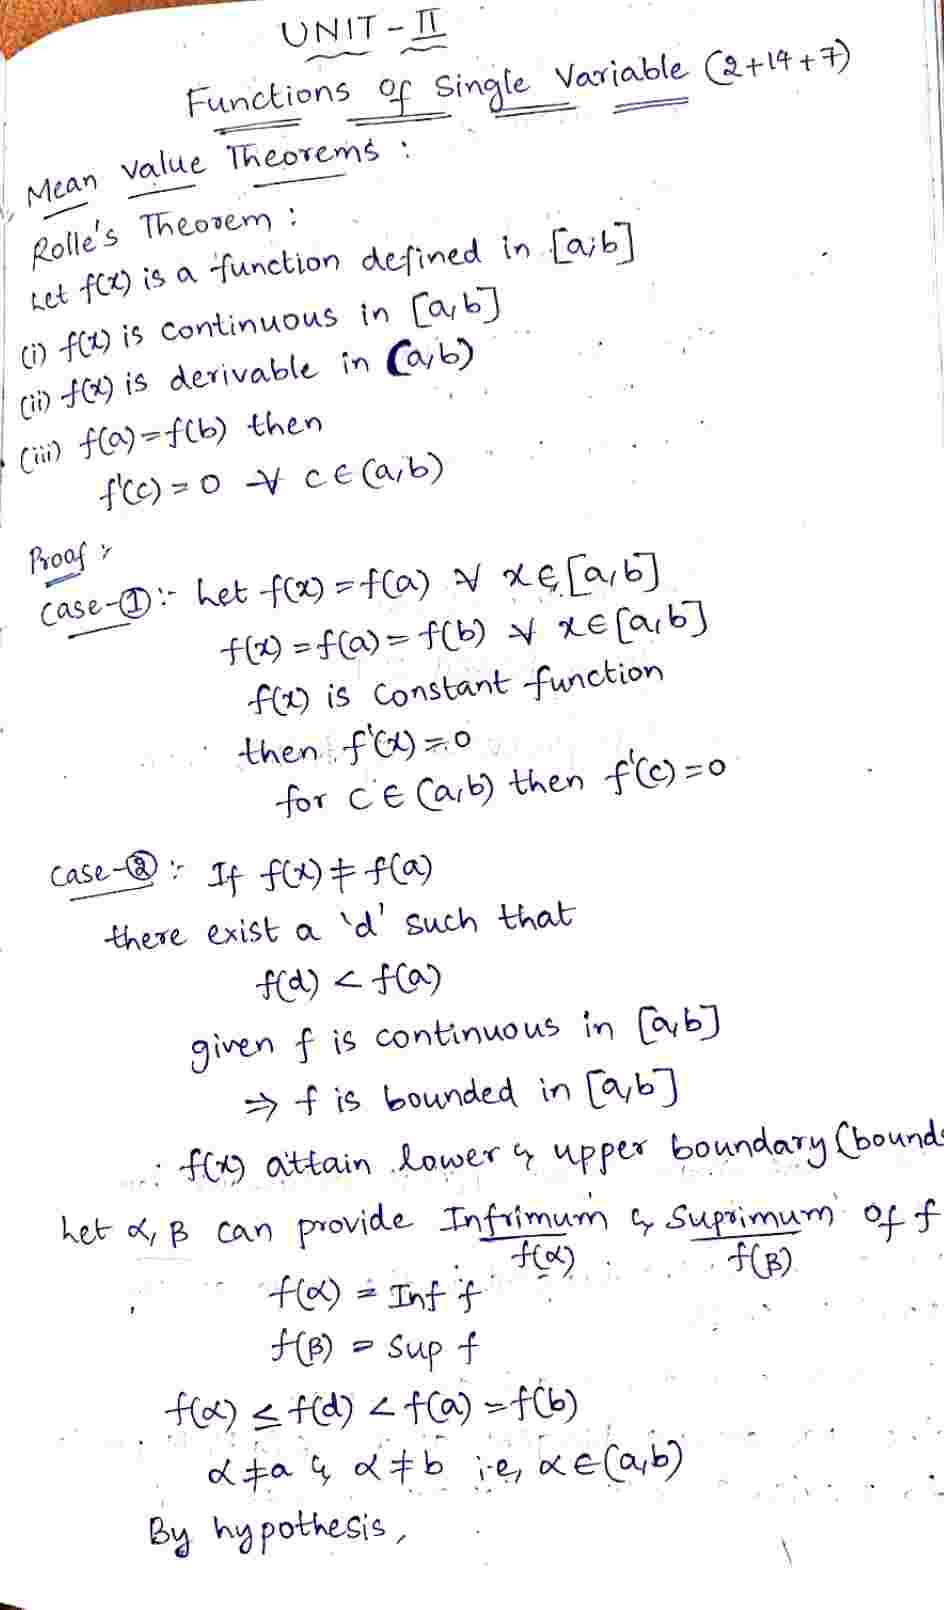 UNIT-II
Functions of Single Variable (2+14+7)
Mean Value Theorems :
Rolle's Theorem :
Let f(x) is a function defined in [a,b]
(i) f(x) is continuous in [a,b]
(ii) f(x) is derivable in (a,b)
(iii) f(a)=f(b) then
f'(c) = 0 ∀ c ∈ (a,b)
Proof :-
Case-① :- Let f(x) = f(a) ∀ x ∈ [a,b]
f(x) = f(a) = f(b) ∀ x ∈ [a,b]
f(x) is constant function
then f'(x) = 0
for c ∈ (a,b) then f'(c) = 0
Case-② :- If f(x) ≠ f(a)
there exist a 'd' such that
f(d) < f(a)
given f is continuous in [a,b]
⇒ f is bounded in [a,b]
∴ f(x) attain lower & upper boundary (bounds
Let α, β can provide Infrimum & Suprimum of f
f(α) f(β)
f(α) = Inf f
f(β) = Sup f
f(α) ≤ f(d) < f(a) = f(b)
α ≠ a & α ≠ b i.e, α ∈ (a,b)
By hypothesis,